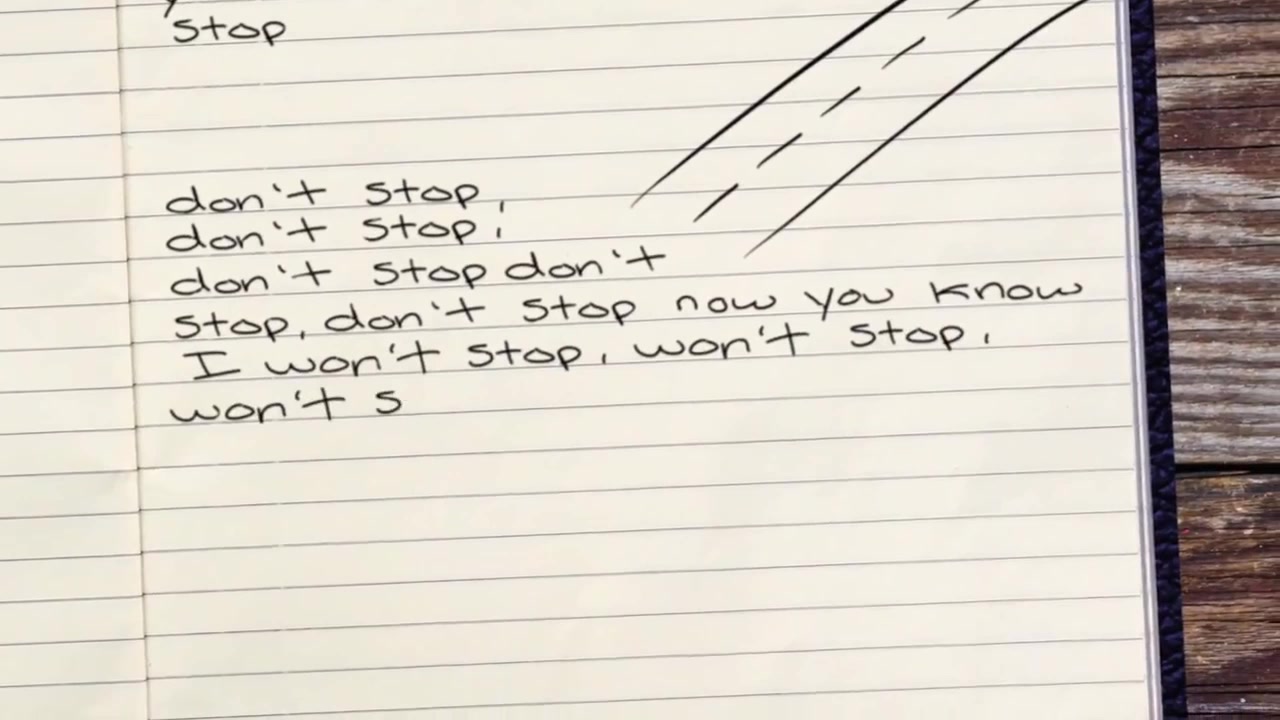 stop
don't stop,
don't stop,
don't stop don't
stop, don't stop now you know
I won't stop, won't stop,
won't s